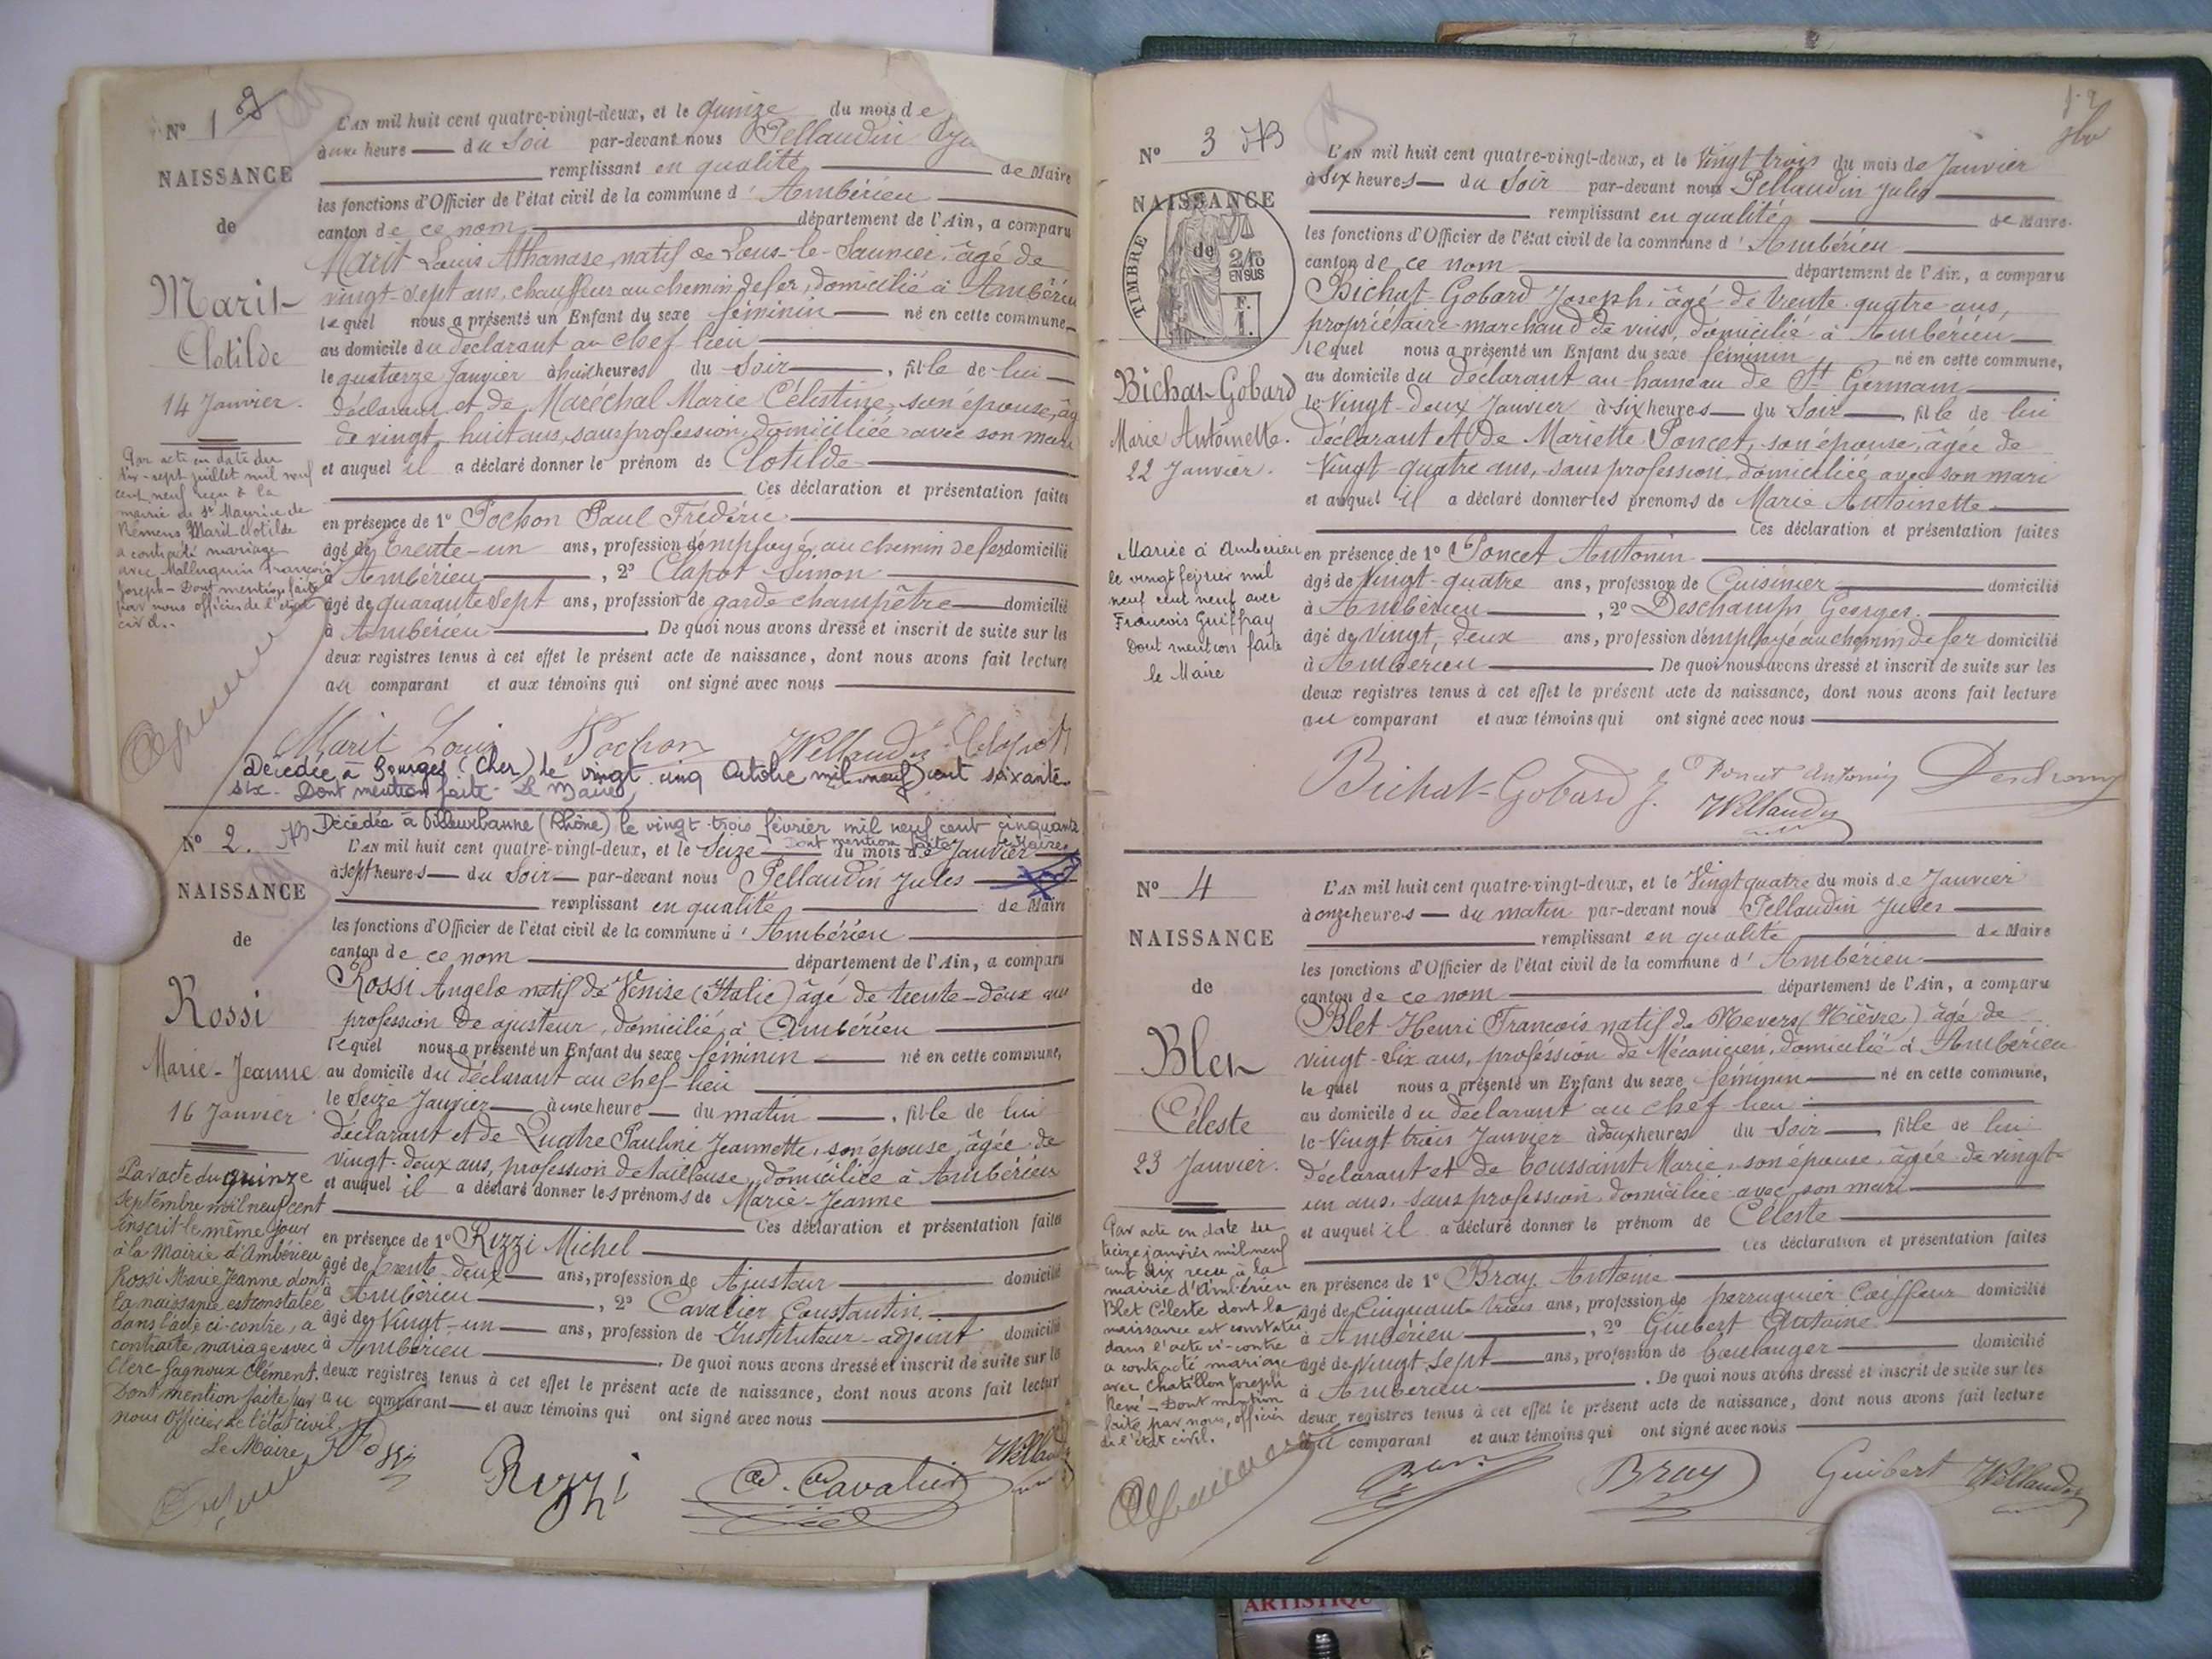 N° 1
NAISSANCE
de
Marit
Clotilde
14 Janvier.
Par acte en date du
dix-sept juillet mil neuf
cent neuf reçu à la
mairie de St Maurice de
Rémens Marit Clotilde
a contracté mariage
avec Mallinquin François
Joseph - Dont mention faite
par nous officier de l'état
civil.
L'AN mil huit cent quatre-vingt-deux, et le quinze du mois de
à une heure du soir par-devant nous Pellaudin Ju
remplissant en qualité de Maire
les fonctions d'Officier de l'état civil de la commune d'Ambérieu
canton de ce nom département de l'Ain, a comparu
Marit Louis Athanase, natif de Lons-le-Saunier, âgé de
vingt-sept ans, chauffeur au chemin de fer, domicilié à Ambérieu
lequel nous a présenté un Enfant du sexe féminin né en cette commune,
au domicile du déclarant au chef lieu
le quatorze Janvier à huit heures du soir, fille de lui
déclarant et de Maréchal Marie Célestine, son épouse, âg
de vingt huit ans, sans profession, domiciliée avec son mari
et auquel il a déclaré donner le prénom de Clotilde
Ces déclaration et présentation faites
en présence de 1° Pochon Paul Frédéric
âgé de trente-un ans, profession d'employé au chemin de fer domicilié
à Ambérieu, 2° Clapot Simon
âgé de quarante sept ans, profession de garde champêtre domicilié
à Ambérieu. De quoi nous avons dressé et inscrit de suite sur les
deux registres tenus à cet effet le présent acte de naissance, dont nous avons fait lecture
au comparant et aux témoins qui ont signé avec nous
Marit Louis Pochon Pellaudin Clapot
Décédée à Bourges (Cher) le vingt cinq Octobre mil neuf cent soixante
six. Dont mention faite. Le Maire,
Décédée à Villeurbanne (Rhône) le vingt-trois février mil neuf cent cinquante
Dont mention faite
N° 2.
NAISSANCE
de
Rossi
Marie-Jeanne
16 Janvier
Par acte du quinze
Septembre mil neuf cent
inscrit le même jour
à la Mairie d'Ambérieu
Rossi Marie Jeanne dont
la naissance est constatée
dans l'acte ci-contre, a
contracté mariage avec
Clerc-Gagnoux Clément.
Dont mention faite par
nous Officier de l'état civil.
Le Maire,
L'AN mil huit cent quatre-vingt-deux, et le Seize du mois de Janvier
à sept heures du soir par-devant nous Pellaudin Jules
remplissant en qualité de Maire
les fonctions d'Officier de l'état civil de la commune d'Ambérieu
canton de ce nom département de l'Ain, a comparu
Rossi Angelo natif de Venise (Italie) âgé de trente-deux ans
profession de ajusteur, domicilié à Ambérieu
lequel nous a présenté un Enfant du sexe féminin né en cette commune,
au domicile du déclarant au chef-lieu
le Seize Janvier à une heure du matin, fille de lui
déclarant et de Quatre Pauline Jeannette, son épouse, âgée de
vingt-deux ans, profession de tailleuse, domiciliée à Ambérieu
et auquel il a déclaré donner les prénoms de Marie-Jeanne
Ces déclaration et présentation faites
en présence de 1° Rizzi Michel
âgé de trente-deux ans, profession de Ajusteur domicilié
à Ambérieu, 2° Cavalier Constantin
âgé de Vingt-un ans, profession de Instituteur-adjoint domicilié
à Ambérieu. De quoi nous avons dressé et inscrit de suite sur le
deux registres tenus à cet effet le présent acte de naissance, dont nous avons fait lectur
au comparant et aux témoins qui ont signé avec nous
Rossi Rizzi Cavalier Pellaudin
N° 3
NAISSANCE
de
TIMBRE
2/10
EN SUS
F.
1.
Bichat-Gobard
Marie Antoinette.
22 Janvier.
Mariée à Ambérieu
le vingt février mil
neuf cent neuf avec
François Guiffray
Dont mention faite
le Maire
L'AN mil huit cent quatre-vingt-deux, et le Vingt trois du mois de Janvier
à six heures du soir par-devant nous Pellaudin Jules
remplissant en qualité de Maire.
les fonctions d'Officier de l'état civil de la commune d'Ambérieu
canton de ce nom département de l'Ain, a comparu
Bichat-Gobard Joseph, âgé de trente-quatre ans,
propriétaire-marchand de vins, domicilié à Ambérieu
lequel nous a présenté un Enfant du sexe féminin né en cette commune,
au domicile du déclarant au hameau de St Germain
le Vingt-deux Janvier à six heures du soir, fille de lui
déclarant et de Mariette Poncet, son épouse, âgée de
Vingt-quatre ans, sans profession, domiciliée avec son mari
et auquel il a déclaré donner les prénoms de Marie Antoinette
Ces déclaration et présentation faites
en présence de 1° Poncet Antonin
âgé de Vingt-quatre ans, profession de Cuisinier domicilié
à Ambérieu, 2° Deschamps Georges.
âgé de vingt-deux ans, profession d'employé au chemin de fer domicilié
à Ambérieu. De quoi nous avons dressé et inscrit de suite sur les
deux registres tenus à cet effet le présent acte de naissance, dont nous avons fait lecture
au comparant et aux témoins qui ont signé avec nous
Bichat-Gobard J. Poncet Antonin Deschamps
Pellaudin
N° 4
NAISSANCE
de
Blet
Céleste
23 Janvier.
Par acte en date du
treize janvier mil neuf
cent dix reçu à la
mairie d'Ambérieu
Blet Céleste dont la
naissance est constatée
dans l'acte ci-contre
a contracté mariage
avec Chatillon Joseph
René - Dont mention
faite par nous, officier
de l'état civil.
L'AN mil huit cent quatre-vingt-deux, et le Vingt quatre du mois de Janvier
à onze heures du matin par-devant nous Pellaudin Jules
remplissant en qualité de Maire
les fonctions d'Officier de l'état civil de la commune d'Ambérieu
canton de ce nom département de l'Ain, a comparu
Blet Henri François natif de Nevers (Nièvre) âgé de
vingt-six ans, profession de Mécanicien, domicilié à Ambérieu
lequel nous a présenté un Enfant du sexe féminin né en cette commune,
au domicile du déclarant au chef lieu
le Vingt trois Janvier à deux heures du soir, fille de lui
déclarant et de Toussaint Marie, son épouse, âgée de vingt-
un ans, sans profession, domiciliée avec son mari
et auquel il a déclaré donner le prénom de Céleste
Ces déclaration et présentation faites
en présence de 1° Bray Antoine
âgé de Cinquante trois ans, profession de perruquier Coiffeur domicilié
à Ambérieu, 2° Guibert Antoine
âgé de Vingt-Sept ans, profession de boulanger domicilié
à Ambérieu. De quoi nous avons dressé et inscrit de suite sur les
deux registres tenus à cet effet le présent acte de naissance, dont nous avons fait lecture
au comparant et aux témoins qui ont signé avec nous
Bray Guibert Pellaudin
ARTISTIQU